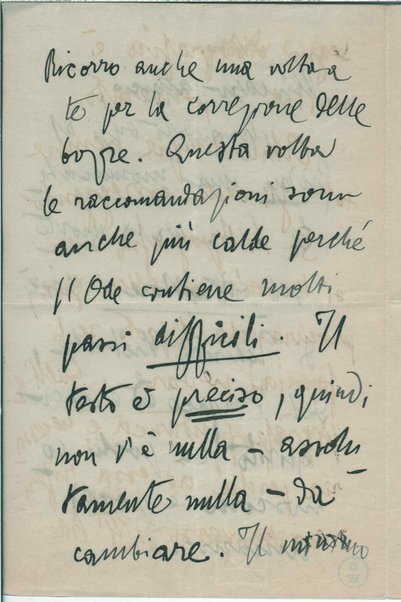 Ricorro anche una volta a
te per la correzione delle
bozze. Questa volta
le raccomandazioni sono
anche più calde perché
l'Ode contiene molti
passi difficili. Il
testo è preciso, quindi
non v'è nulla – assolu
tamente nulla – da
cambiare. Il minimo